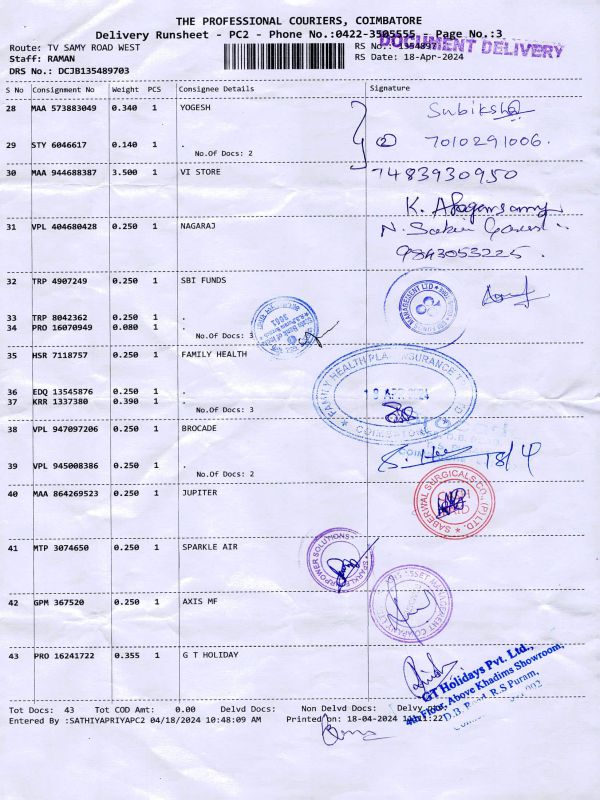 THE PROFESSIONAL COURIERS, COIMBATORE
Delivery Runsheet - PC2 - Phone No.:0422-3505555 Page No.:3
Route: TV SAMY ROAD WEST RS No.: 1354897
DOCUMENT DELIVERY
Staff: RAMAN RS Date: 18-Apr-2024
DRS No.: DCJB135489703
S No Consignment No Weight PCS Consignee Details Signature
28 MAA 573883049 0.340 1 YOGESH Subiksha
29 STY 6046617 0.140 1 . 7010291006.
No.Of Docs: 2
30 MAA 944688387 3.500 1 VI STORE 7483930950
K.
31 VPL 404680428 0.250 1 NAGARAJ N.
9843053225.
32 TRP 4907249 0.250 1 SBI FUNDS
MANAGEMENT LTD
33 TRP 8042362 0.250 1 .
34 PRO 16070949 0.080 1 .
No.Of Docs: 3
35 HSR 7118757 1 FAMILY HEALTH
FAMILY HEALTH PLAN INSURANCE
18 APR 2024
COIMBATORE
36 EDQ 13545876 0.250 1 .
37 KRR 1337380 0.390 1 .
No.Of Docs: 3
38 VPL 947097206 0.250 1 BROCADE
18/4
39 VPL 945008386 0.250 1 .
No.Of Docs: 2
40 MAA 864269523 0.250 1 JUPITER
SABERWAL SURGICALS CO. (P) LTD.
41 MTP 3074650 0.250 1 SPARKLE AIR
POWER SOLUTIONS
SPARKLE
42 GPM 367520 0.250 1 AXIS MF
ASSET MANAGEMENT COMPANY LTD
43 PRO 16241722 0.355 1 G T HOLIDAY
GT Holidays Pvt. Ltd.,
4th Floor, Above Khadims Showroom,
D.B. Road, R.S Puram,
Tot Docs: 43 Tot COD Amt: 0.00 Delvd Docs: Non Delvd Docs:
Entered By :SATHIYAPRIYAPC2 04/18/2024 10:48:09 AM Printed on: 18-04-2024 11:11:22